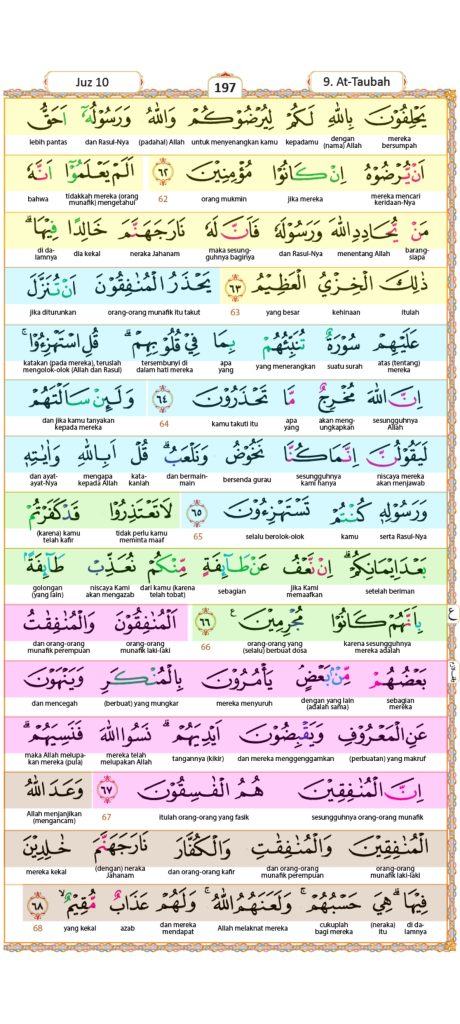 Juz 10
197
9. At-Taubah
يَحْلِفُوْنَ بِاللّٰهِ لَكُمْ لِيُرْضُوْكُمْ وَاللّٰهُ وَرَسُوْلُهٗٓ اَحَقُّ
mereka bersumpah dengan (nama) Allah kepadamu untuk menyenangkan kamu (padahal) Allah dan Rasul-Nya lebih pantas
اَنْ يُّرْضُوْهُ اِنْ كَانُوْا مُؤْمِنِيْنَ ٦٢ اَلَمْ يَعْلَمُوْٓا اَنَّهٗ
mereka mencari keridaan-Nya jika mereka orang mukmin 62 tidakkah mereka (orang munafik) mengetahuf bahwa
مَنْ يُّحَادِدِ اللّٰهَ وَرَسُوْلَهٗ فَاَنَّ لَهٗ نَارَ جَهَنَّمَ خَالِدًا فِيْهَاۗ
barang-siapa menentang Allah dan Rasul-Nya maka sesung-guhnya baginya neraka Jahanam dia kekal di da-lamnya
ذٰلِكَ الْخِزْيُ الْعَظِيْمُ ٦٣ يَحْذَرُ الْمُنٰفِقُوْنَ اَنْ تُنَزَّلَ
itulah kehinaan yang besar 63 orang-orang munafik itu takut jika diturunkan
عَلَيْهِمْ سُوْرَةٌ تُنَبِّئُهُمْ بِمَا فِيْ قُلُوْبِهِمْۗ قُلِ اسْتَهْزِءُوْاۚ
atas (tentang) mereka suatu surah yang menerangkan apa yang tersembunyi di dalam hati mereka katakan (pada mereka), teruslah mengolok-olok (Allah dan Rasul)
اِنَّ اللّٰهَ مُخْرِجٌ مَّا تَحْذَرُوْنَ ٦٤ وَلَىِٕنْ سَاَلْتَهُمْ
sesungguhnya Allah akan meng-ungkapkan apa yang kamu takuti itu 64 dan jika kamu tanyakan kepada mereka
لَيَقُوْلُنَّ اِنَّمَا كُنَّا نَخُوْضُ وَنَلْعَبُۗ قُلْ اَبِاللّٰهِ وَاٰيٰتِهٖ
niscaya mereka akan menjawab sesungguhnya kami hanya bersenda gurau dan bermain-main kata-kanlah mengapa kepada Allah dan ayat-ayat-Nya
وَرَسُوْلِهٖ كُنْتُمْ تَسْتَهْزِءُوْنَ ٦٥ لَا تَعْتَذِرُوْا قَدْ كَفَرْتُمْ
serta Rasul-Nya kamu selalu berolok-olok 65 tidak perlu kamu meminta maaf (karena) kamu telah kafir
بَعْدَ اِيْمَانِكُمْۗ اِنْ نَّعْفُ عَنْ طَاۤىِٕفَةٍ مِّنْكُمْ نُعَذِّبْ طَاۤىِٕفَةً ۢ
setelah beriman jika Kami memaafkan sebagian dari kamu (karena telah tobat) niscaya Kami akan mengazab golongan (yang lain)
بِاَنَّهُمْ كَانُوْا مُجْرِمِيْنَ ࣖ ٦٦ اَلْمُنٰفِقُوْنَ وَالْمُنٰفِقٰتُ
karena sesungguhnya mereka adalah orang-orang yang (selalu) berbuat dosa 66 orang-orang munafik laki-laki dan orang-orang munafik perempuan
ع
بَعْضُهُمْ مِّنْۢ بَعْضٍۘ يَأْمُرُوْنَ بِالْمُنْكَرِ وَيَنْهَوْنَ
sebagian mereka dengan yang lain (adalah sama) mereka menyuruh (berbuat) yang mungkar dan mencegah
عَنِ الْمَعْرُوْفِ وَيَقْبِضُوْنَ اَيْدِيَهُمْۗ نَسُوا اللّٰهَ فَنَسِيَهُمْۗ
(perbuatan) yang makruf dan mereka menggenggamkan tangannya (kikir) mereka telah melupakan Allah maka Allah melupa-kan mereka (pula)
اِنَّ الْمُنٰفِقِيْنَ هُمُ الْفٰسِقُوْنَ ٦٧ وَعَدَ اللّٰهُ
sesungguhnya orang-orang munafik itulah orang-orang yang fasik 67 Allah menjanjikan (mengancam)
الْمُنٰفِقِيْنَ وَالْمُنٰفِقٰتِ وَالْكُفَّارَ نَارَ جَهَنَّمَ خٰلِدِيْنَ
orang-orang munafik laki-laki dan orang-orang munafik perempuan dan orang-orang kafir (dengan) neraka Jahanam mereka kekal
فِيْهَاۗ هِيَ حَسْبُهُمْۚ وَلَعَنَهُمُ اللّٰهُۚ وَلَهُمْ عَذَابٌ مُّقِيْمٌۙ ٦٨
di da-lamnya (neraka) itu cukuplah bagi mereka Allah melaknat mereka dan mereka mendapat azab yang kekal 68